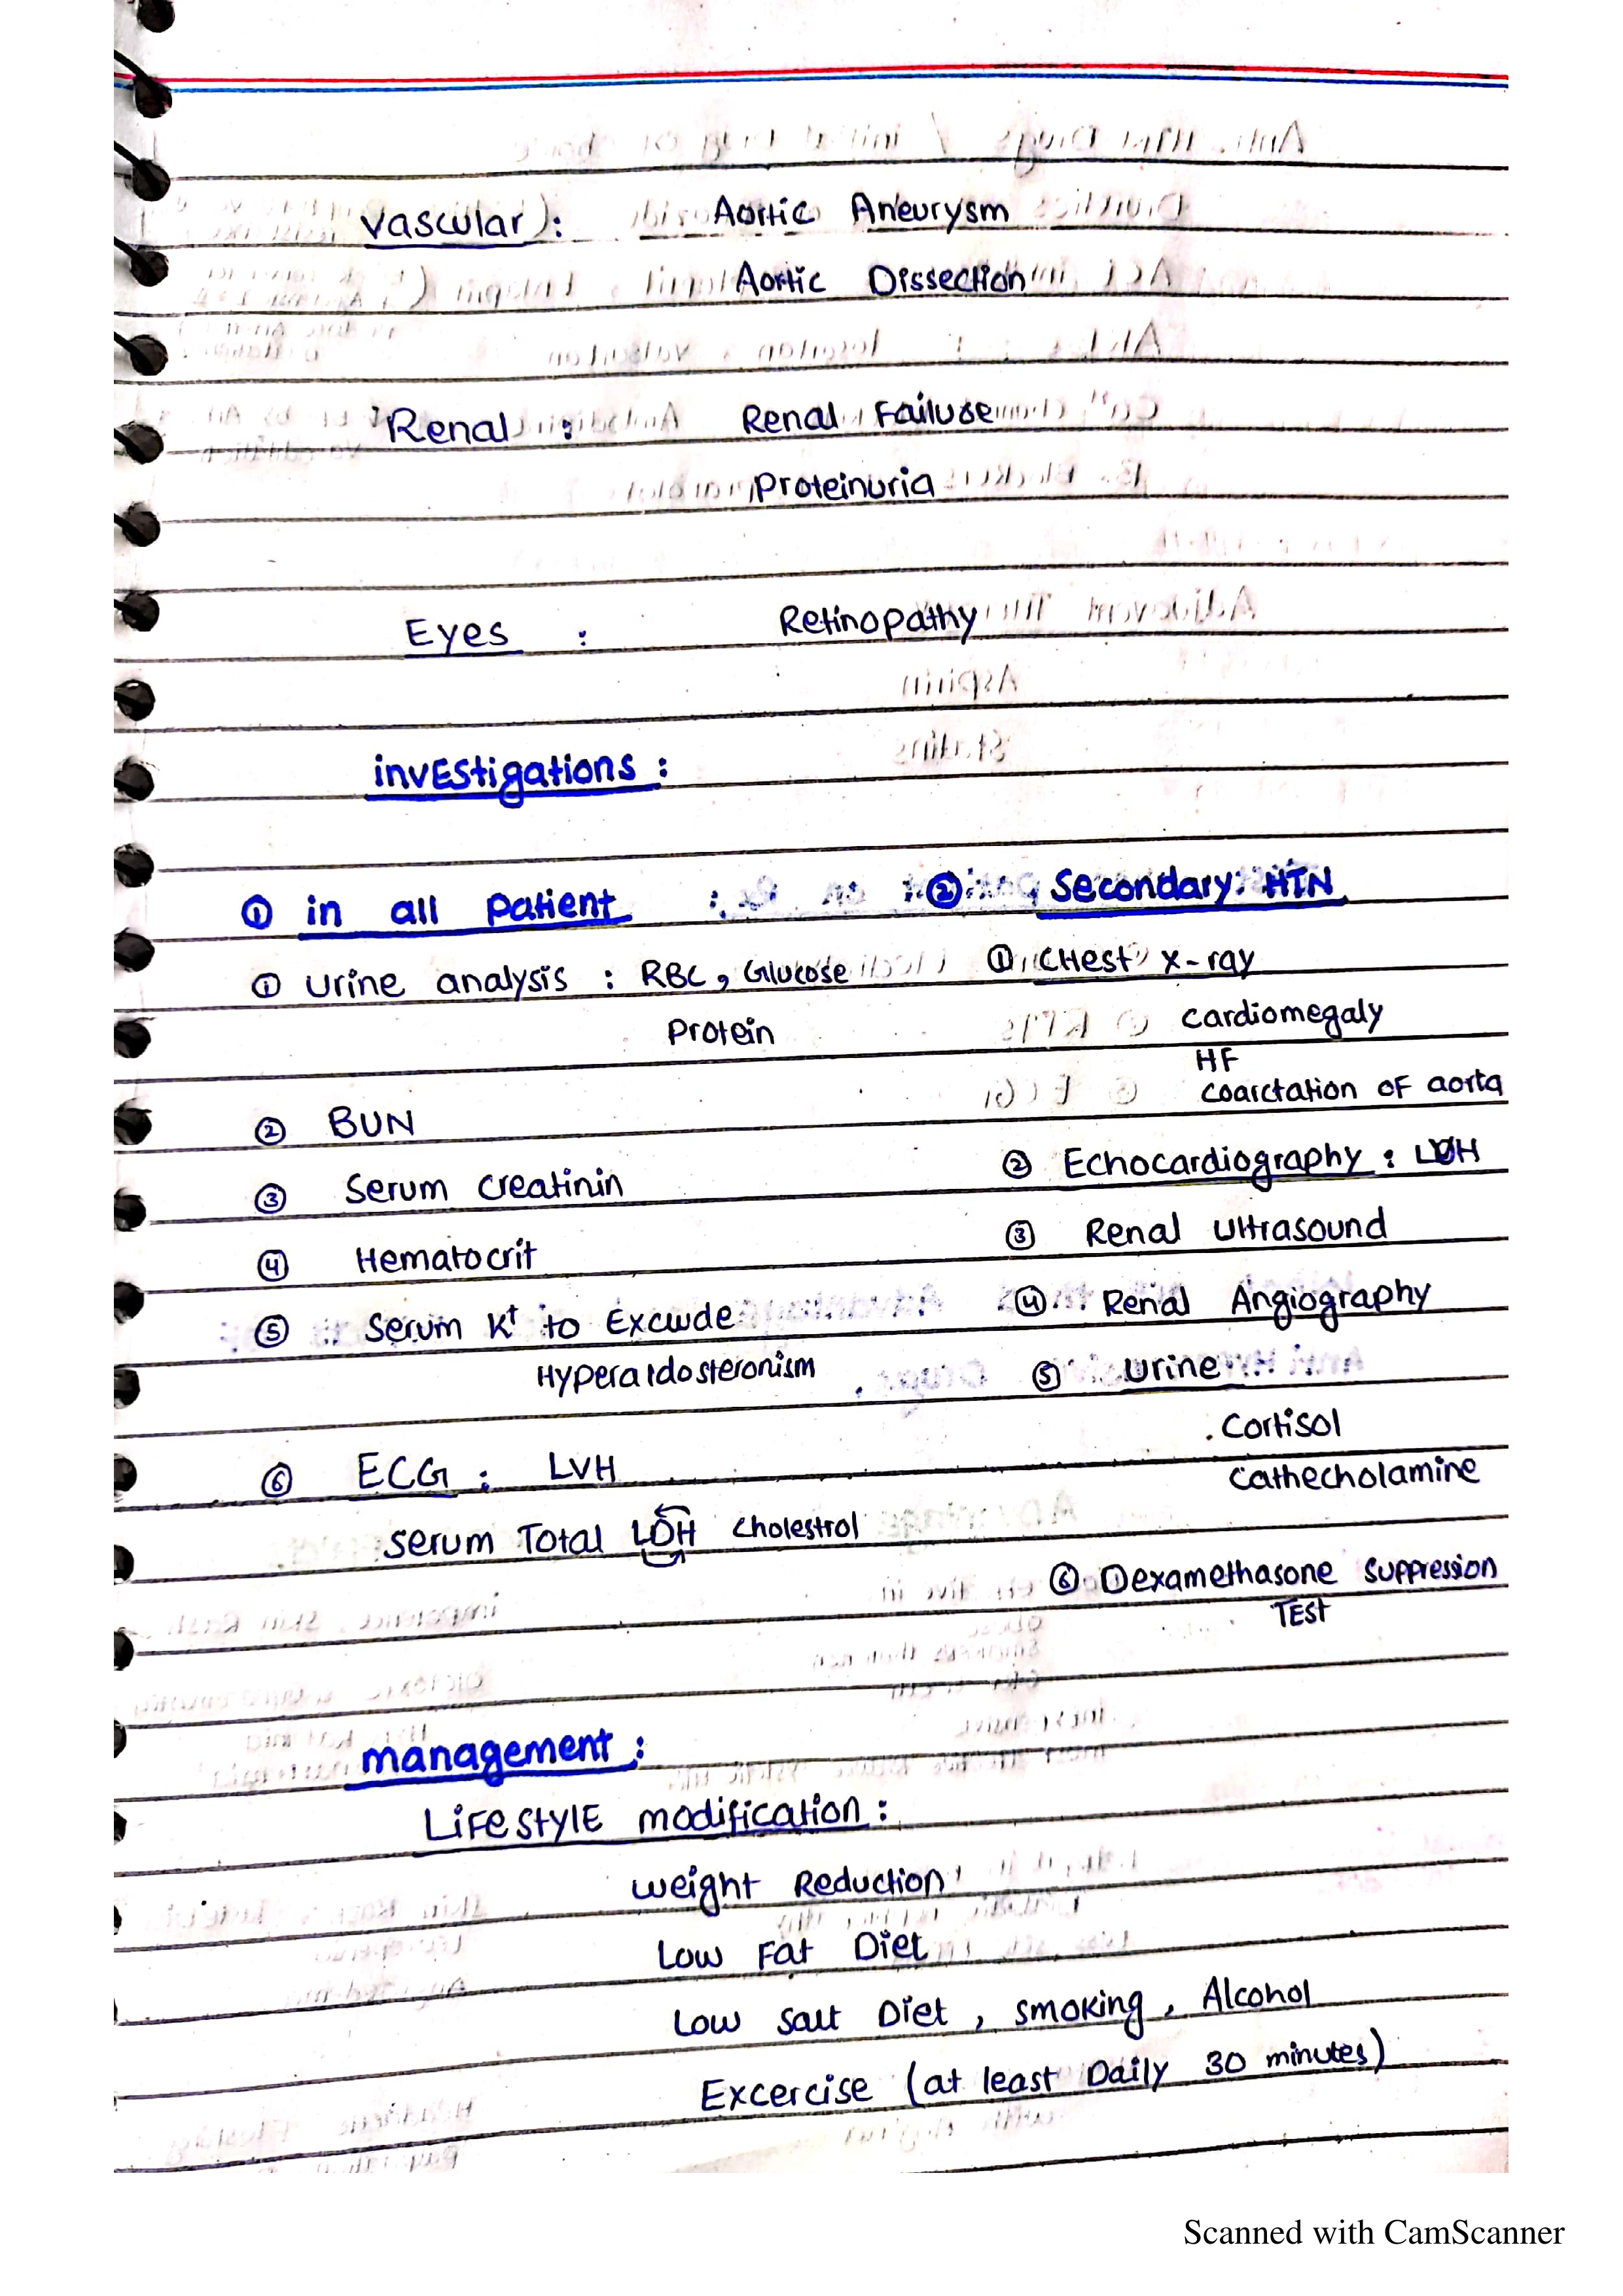 Vascular : Aortic Aneurysm
Aortic Dissection
Renal : Renal Failure
Proteinuria
Eyes : Retinopathy
investigations :
① in all patient
① urine analysis : RBC, Glucose
Protein
② BUN
③ Serum creatinin
④ Hematocrit
⑤ Serum K+ to Exclude
Hyperaldosteronism
⑥ ECG : LVH
Serum Total LDH cholestrol
② Secondary HTN
① CHest x-ray
cardiomegaly
HF
coarctation of aorta
② Echocardiography : LVH
③ Renal Ultrasound
④ Renal Angiography
⑤ Urine
. Cortisol
Cathecholamine
⑥ Dexamethasone suppression
TEst
management :
LiFestylE modification :
weight Reduction
Low Fat Diet
Low Salt Diet , smoking , Alcohol
Excercise (at least Daily 30 minutes)
Scanned with CamScanner